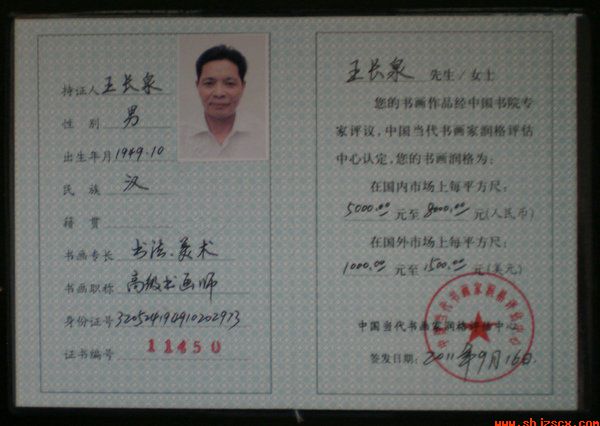 持证人 王长泉
性 别 男
出生年月 1949.10
民 族 汉
籍 贯
书画专长 书法.美术
书画职称 高级书画师
身份证号 320524194910202973
证书编号 11450
王长泉 先生/女士
您的书画作品经中国书院专
家评议，中国当代书画家润格评估
中心认定，您的书画润格为：
在国内市场上每平方尺：
5000.00 元至 8000.00 元(人民币)
在国外市场上每平方尺：
1000.00 元至 1500.00 元(美元)
中国当代书画家润格评估中心
签发日期：2011年9月16日.
中国当代书画家润格评估中心
www.shjzscx.com